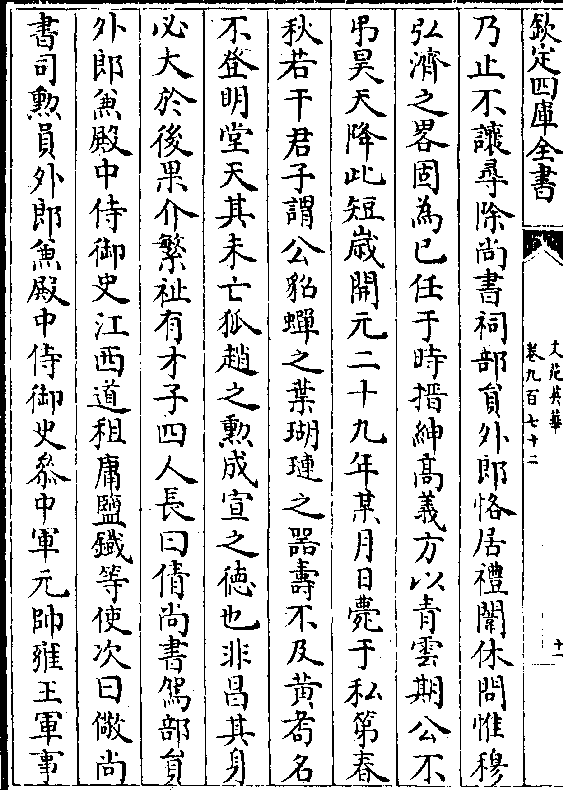 欽定四庫全書
文苑英華
卷九百七十二
十一
乃止不讓尋除尚書祠部員外郎恪居禮闈休問惟穆
弘濟之畧固為已任于時搢紳髙義方以青雲期公不
弔昊天降此短嵗開元二十九年某月日薨于私第春
秋若干君子謂公貂蟬之葉瑚璉之器壽不及黄耇名
不登明堂天其未亡狐趙之勲成宣之徳也非昌其身
必大於後果介繁祉有才子四人長曰倩尚書駕部員
外郎兼殿中侍御史江西道租庸鹽鐵等使次曰儆尚
書司勲員外郎兼殿中侍御史叅中軍元帥雍王軍事